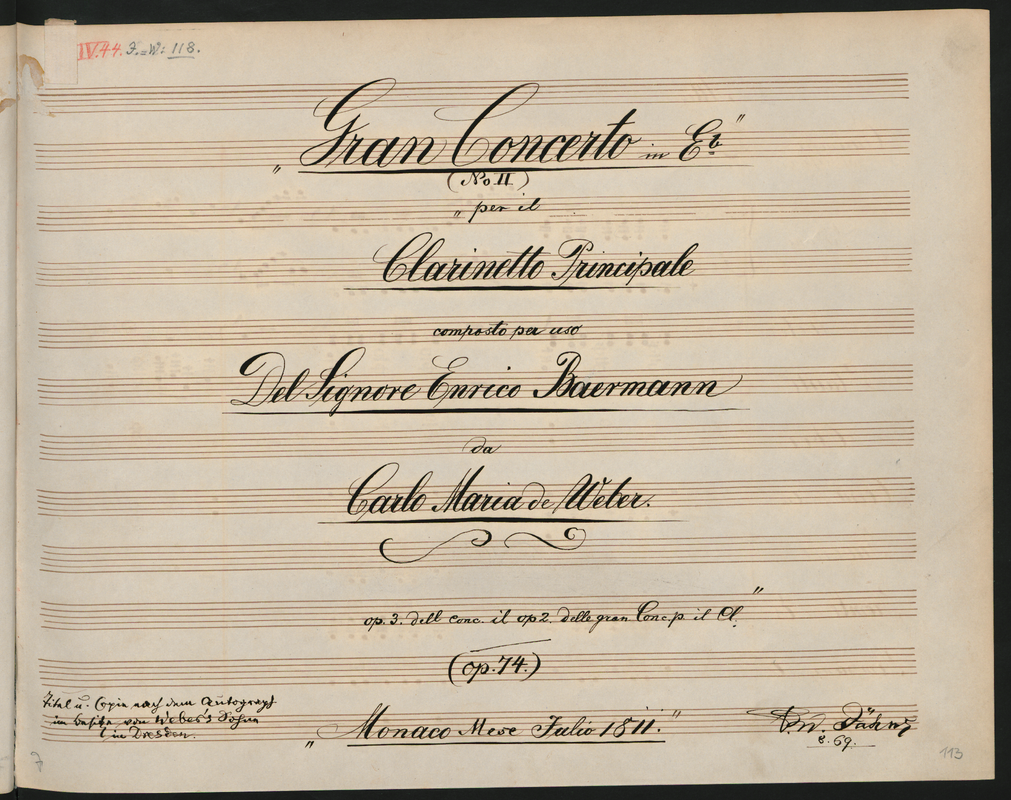 IV.44. J.=W: 118.
„Gran Concerto in E♭"
(No. II)
„per il
Clarinetto Principale
composto per uso
Del Signore Enrico Baermann
da
Carlo Maria de Weber.
op. 3. dell conc. il op 2. delle gran Conc. p. il Cl."
(op. 74.)
Titel u. Copie nach dem Autograph
im Besitze von Weber's Sohne
in Dresden.
„Monaco Mese Julio 1811."
F. W. Jähns
8. 69.
7
113